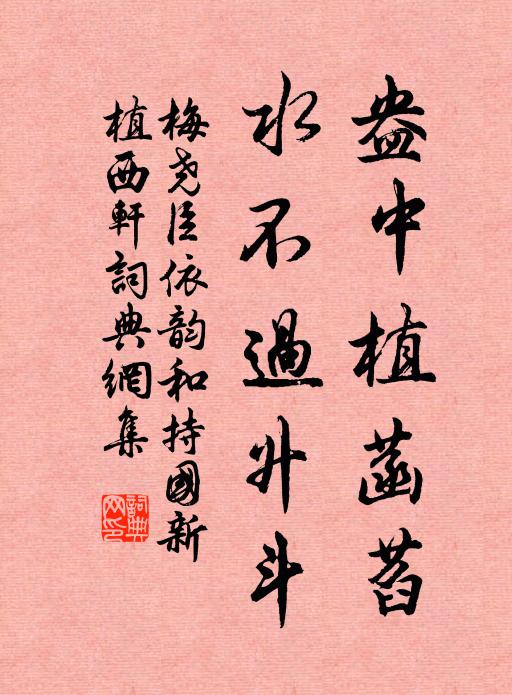 盎中植菡萏
水不過升斗
梅尧臣依韵和持國新
植西軒詞典網集
詞典网印